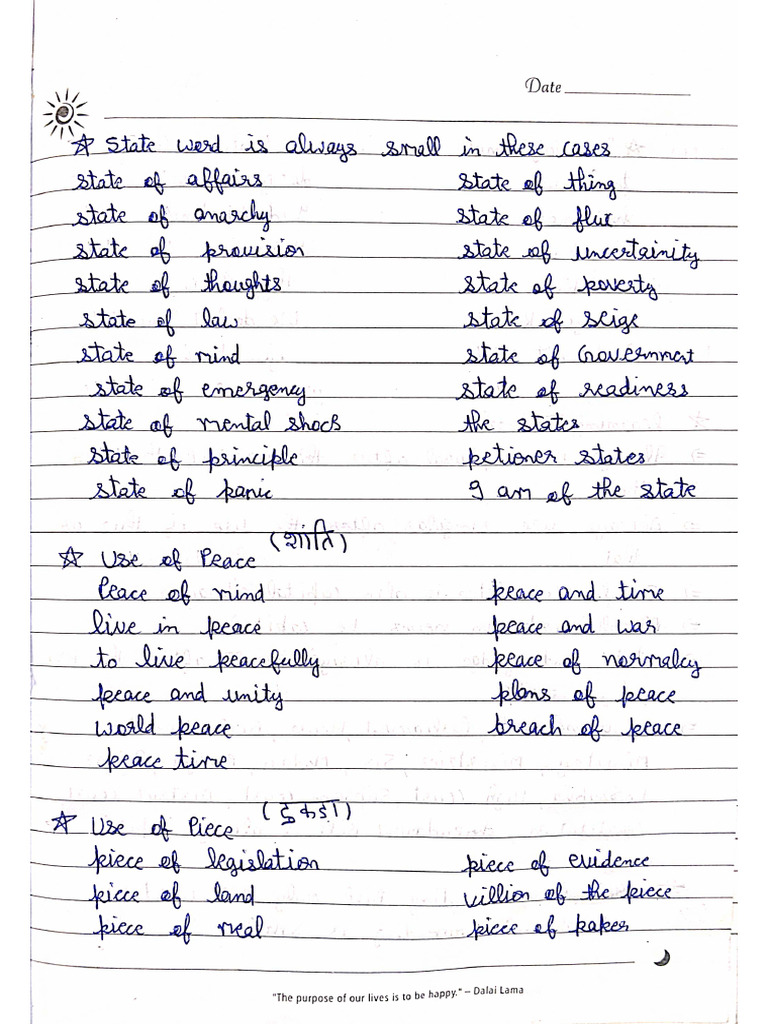 Date
☆ State word is always small in these cases
state of affairs state of thing
state of anarchy state of flux
state of provision state of uncertainity
state of thoughts state of poverty
state of law state of seige
state of mind state of Government
state of emergency state of readiness
state of mental shock the states
state of principle petioner states
state of panic I am of the state
☆ Use of Peace (शांति)
Peace of mind peace and time
live in peace peace and war
to live peacefully peace of normalcy
peace and unity plans of peace
world peace breach of peace
peace time
☆ Use of Piece (टुकड़ा)
piece of legislation piece of evidence
piece of land villion of the piece
piece of meal piece of paper
"The purpose of our lives is to be happy." – Dalai Lama